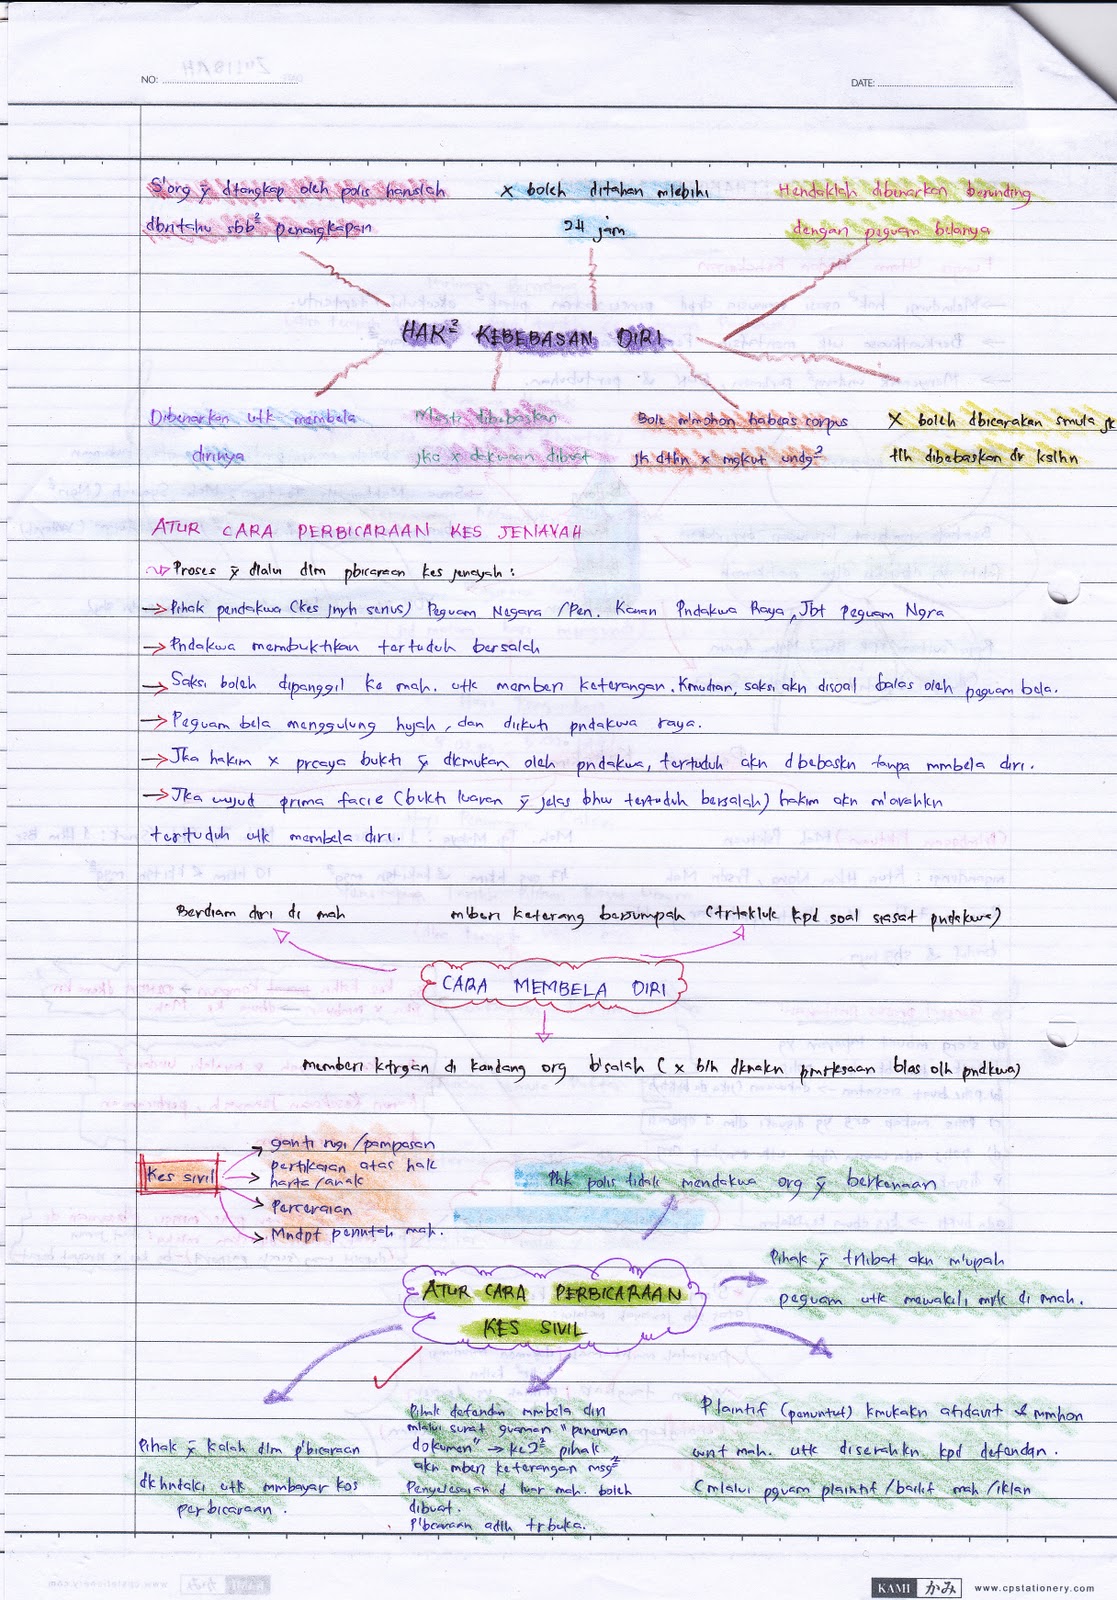 NO:
DATE:
S'org ȳ dtangkap oleh polis haruslah
dbritahu sbb² penangkapan
x boleh ditahan mlebihi
24 jam
Hendaklah dibenarkan berunding
dengan peguam belanya
HAK² KEBEBASAN DIRI
Dibenarkan utk membela
dirinya
Mesti dibebaskan
jka x dakwaan dibuat
Bole m'mohon habeas corpus
jk dthn x mgkut undg²
X boleh dbicarakan smula jk
tlh dibebaskan dr kslhn
ATUR CARA PERBICARAAN KES JENAYAH
Proses ȳ dlalui dlm pbicaraan kes jenayah :
→ Pihak pendakwa (kes jnyh serius) Peguam Negara / Pen. Kanan Pndakwa Raya, Jbt Peguam Ngra
→ Pndakwa membuktikan tertuduh bersalah
→ Saksi boleh dipanggil ke mah. utk memberi keterangan. Kmudian, saksi akn disoal balas oleh peguam bela.
→ Peguam bela menggulung hujah, dan diikuti pndakwa raya.
→ Jka hakim x prcaya bukti ȳ dkmukan oleh pndakwa, tertuduh akn dbebaskn tanpa mmbela diri.
→ Jka wujud prima facie (bukti luaran ȳ jelas bhw tertuduh bersalah) hakim akn m'arahkn
tertuduh utk membela diri.
Berdiam diri di mah
mberi keterang bersumpah (trtakluk kpd soal siasat pndakwa)
CARA MEMBELA DIRI
memberi ktrgan di kandang org b'salah ( x blh dknakn pmrksaan blas olh pndkwa)
Kes sivil
ganti rugi / pampasan
pertikaian atas hak
harta / anak
Perceraian
Mndpt perintah mah.
Phk polis tidak mendakwa org ȳ berkenaan
ATUR CARA PERBICARAAN
KES SIVIL
Pihak ȳ trlibat akn m'upah
peguam utk mewakili mrk di mah.
Pihak ȳ kalah dlm p'bicaraan
dkhndaki utk mmbayar kos
perbicaraan.
Pihak defendan mmbela diri
mlalui surat guaman "penemuan
dokumen" → ke2² pihak
akn mberi keterangan msg²
Penyelesaian d luar mah. boleh
dibuat.
P'bicaraan adlh trbuka.
Plaintif (penuntut) kmukakn afidavit & mmhon
writ mah. utk diserahkn kpd defendan.
(mlalui pguam plaintif / bailif mah / iklan
KAMI かみ
www.cpstationery.com